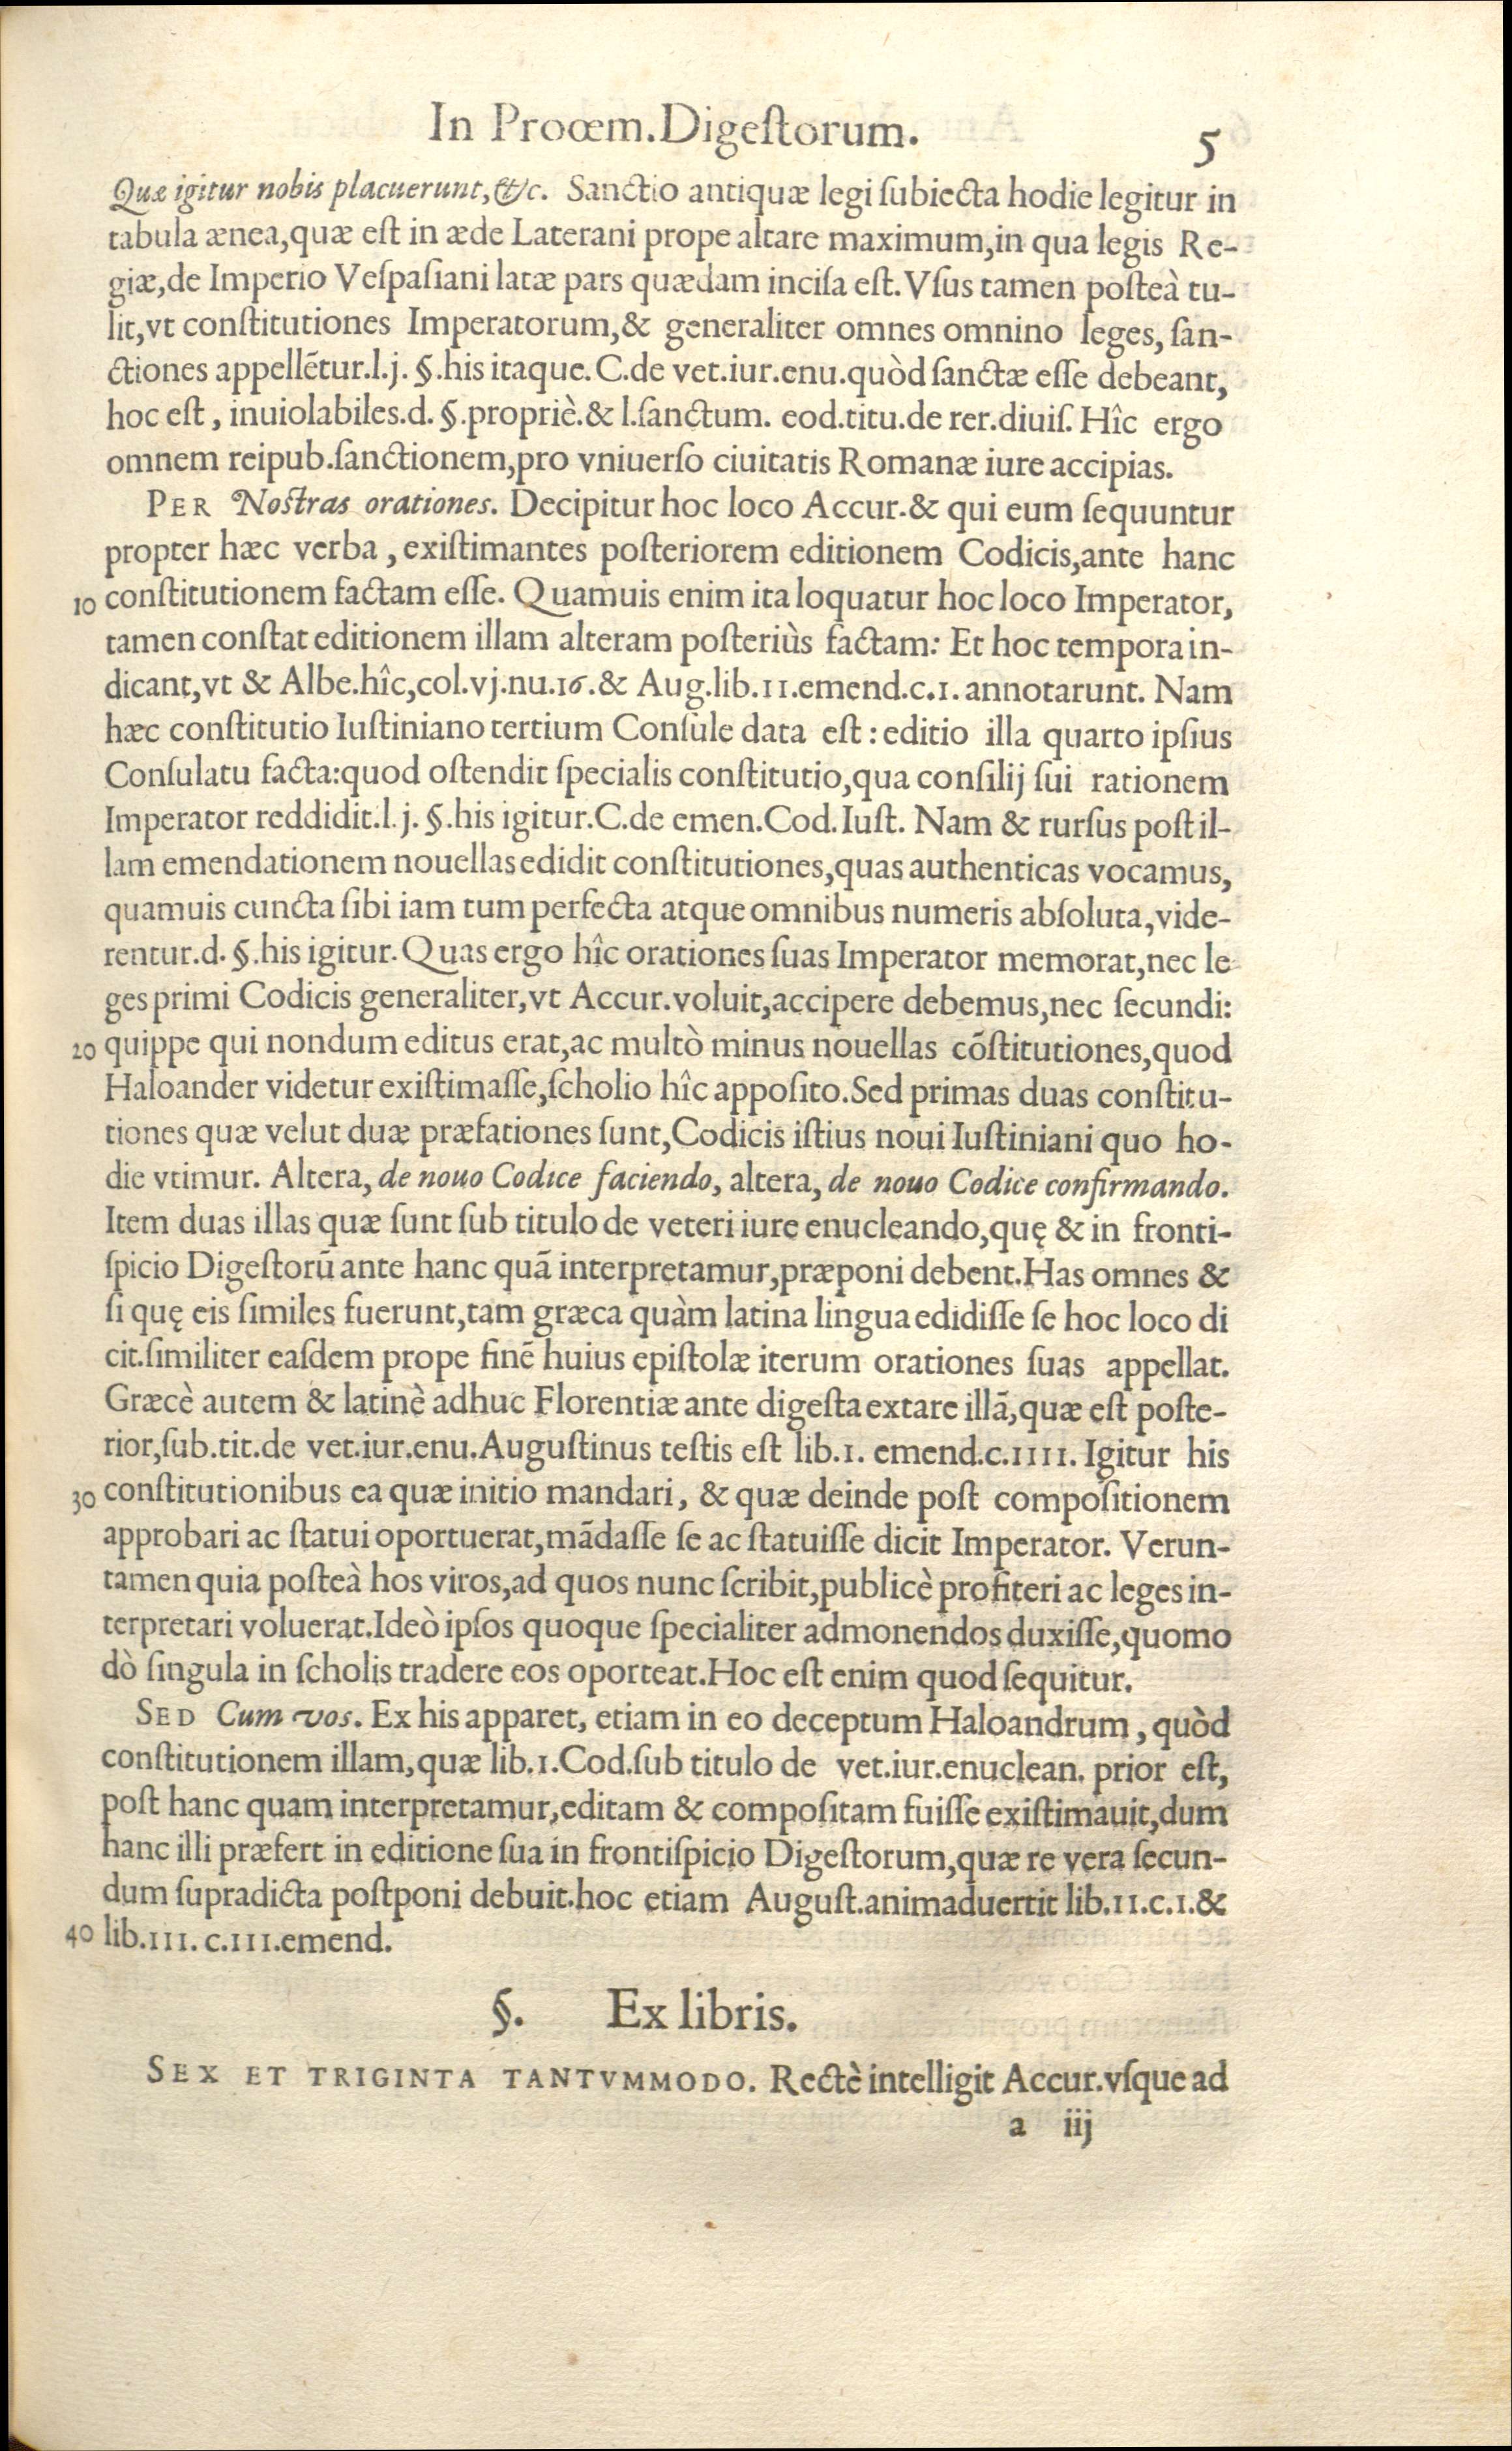 In Prooem.Digeſtorum. 5
Quæ igitur nobis placuerunt,&c. Sanctio antiquæ legi ſubiecta hodie legitur in
tabula ænea,quæ eſt in æde Laterani prope altare maximum,in qua legis Re-
giæ,de Imperio Veſpaſiani latæ pars quædam inciſa eſt.Vſus tamen poſteà tu-
lit,vt conſtitutiones Imperatorum,& generaliter omnes omnino leges, ſan-
ctiones appellẽtur.l.j. §.his itaque.C.de vet.iur.enu.quòd ſanctæ eſſe debeant,
hoc eſt, inuiolabiles.d. §.propriè.& l.ſanctum. eod.titu.de rer.diuiſ. Hîc ergo
omnem reipub.ſanctionem,pro vniuerſo ciuitatis Romanæ iure accipias.
PER Noſtras orationes. Decipitur hoc loco Accur.& qui eum ſequuntur
propter hæc verba, exiſtimantes poſteriorem editionem Codicis,ante hanc
10 conſtitutionem factam eſſe. Quamuis enim ita loquatur hoc loco Imperator,
tamen conſtat editionem illam alteram poſteriùs factam: Et hoc tempora in-
dicant,vt & Albe.hîc,col.vj.nu.16.& Aug.lib.II.emend.c.I. annotarunt. Nam
hæc conſtitutio Iuſtiniano tertium Conſule data eſt: editio illa quarto ipſius
Conſulatu facta:quod oſtendit ſpecialis conſtitutio,qua conſilij ſui rationem
Imperator reddidit.l.j. §.his igitur.C.de emen.Cod.Iuſt. Nam & rurſus poſt il-
lam emendationem nouellas edidit conſtitutiones,quas authenticas vocamus,
quamuis cuncta ſibi iam tum perfecta atque omnibus numeris abſoluta,vide-
rentur.d. §.his igitur. Quas ergo hîc orationes ſuas Imperator memorat,nec le
ges primi Codicis generaliter,vt Accur.voluit,accipere debemus,nec ſecundi:
20 quippe qui nondum editus erat,ac multò minus nouellas cõſtitutiones,quod
Haloander videtur exiſtimaſſe,ſcholio hîc appoſito.Sed primas duas conſtitu-
tiones quæ velut duæ præfationes ſunt,Codicis iſtius noui Iuſtiniani quo ho-
die vtimur. Altera, de nouo Codice faciendo, altera, de nouo Codice confirmando.
Item duas illas quæ ſunt ſub titulo de veteri iure enucleando,quę & in fronti-
ſpicio Digeſtorũ ante hanc quã interpretamur,præponi debent.Has omnes &
ſi quę eis ſimiles fuerunt,tam græca quàm latina lingua edidiſſe ſe hoc loco di
cit.ſimiliter eaſdem prope finẽ huius epiſtolæ iterum orationes ſuas appellat.
Græcè autem & latinè adhuc Florentiæ ante digeſta extare illã,quæ eſt poſte-
rior,ſub.tit.de vet.iur.enu.Auguſtinus teſtis eſt lib.I. emend.c.IIII. Igitur his
30 conſtitutionibus ea quæ initio mandari, & quæ deinde poſt compoſitionem
approbari ac ſtatui oportuerat,mãdaſſe ſe ac ſtatuiſſe dicit Imperator. Verun-
tamen quia poſteà hos viros,ad quos nunc ſcribit,publicè profiteri ac leges in-
terpretari voluerat.Ideò ipſos quoque ſpecialiter admonendos duxiſſe,quomo
dò ſingula in ſcholis tradere eos oporteat.Hoc eſt enim quod ſequitur.
SED Cum vos. Ex his apparet, etiam in eo deceptum Haloandrum, quòd
conſtitutionem illam,quæ lib.I.Cod.ſub titulo de vet.iur.enuclean. prior eſt,
poſt hanc quam interpretamur,editam & compoſitam fuiſſe exiſtimauit,dum
hanc illi præfert in editione ſua in frontiſpicio Digeſtorum,quæ re vera ſecun-
dum ſupradicta poſtponi debuit.hoc etiam Auguſt.animaduertit lib.II.c.I.&
40 lib.III. c.III.emend.
§. Ex libris.
SEX ET TRIGINTA TANTVMMODO. Rectè intelligit Accur.vſque ad
a iij